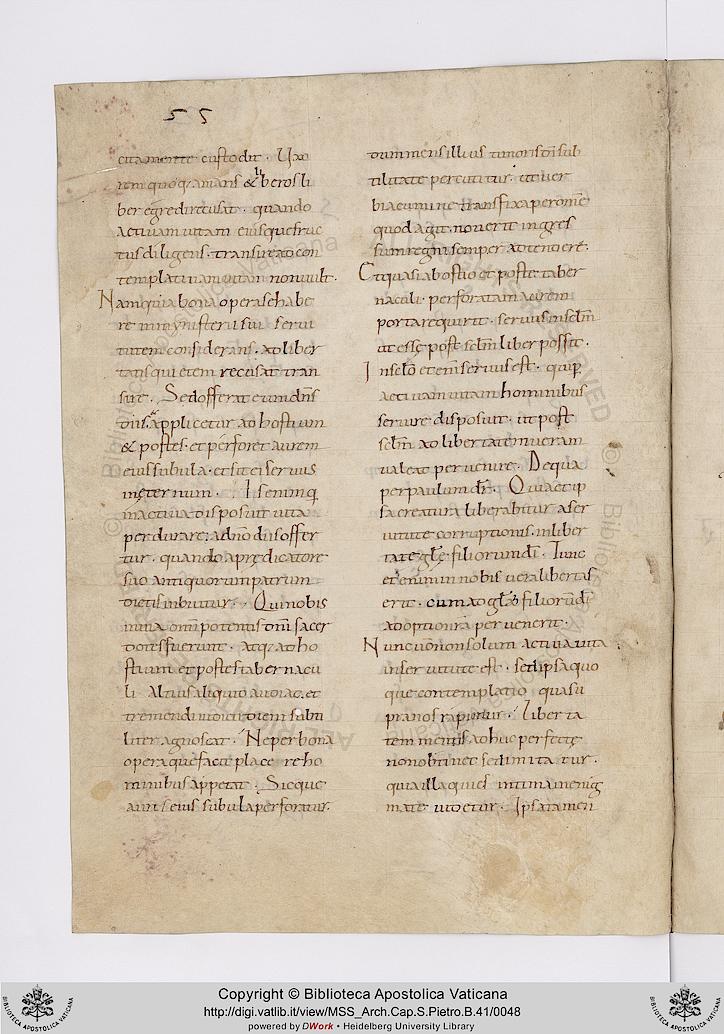 55
citamente custodit. Uxo
rem quoq; amans & liberos li
ber egredi recusat. quando
activam vitam eiusque fruc
tus diligens. transire ad con
templativam vitam non vult.
Nam quia bona opera se habe
re in mynisterii sui servi
tutem considerans. ad liber
tatis quietem recusat tran
sire. Sed offerat eum dns
diis. applicetur ad hostium
& postes. et perforet aurem
eius subula. et sit ei servus
in eternum. Is enim q
in activa disposuit vita
perdurare; a dno diis offer
tur. quando a predicatore
suo antiquorum patrum
dictis inbuitur. Qui nobis
in via omnipotentis dni sacer
dotes fuerunt. atq; ad ho
stium et postes tabernacu
li altius aliquid audiat. et
tremendi iudicii diem subti
liter agnoscat. Ne per bona
opera que facit placere ho
minibus appetat. Sicque
auris eius subula perforatur.
dum mens illius timoris di sub
tilitate percutitur. ut ver
bi acumine transfixa per omne
quod agit. noverit ingres
sum regni semper adtendere.
Et quasi ab ostio et poste taber
naculi. perforatam aurem
portare quirit. servus in sclm
ut esse post sclm liber possit.
In sclo etem servus est. quip
activam vitam hominibus
servire disposuit. ut post
sclm ad libertatem veram
valeat pervenire. De qua
per paulum dr. Quia et ip
sa creatura liberabitur a ser
vitute corruptionis. in liber
tate gle filiorum di. Tunc
et enim in nobis vera libertas
erit. cum ad glam filiorum di
adoptio nra pervenerit.
Nunc v non solum activa vita
in servitute est. sed ipsa quo
que contemplatio. qua su
pra nos rapimur. liberta
tem mentis adhuc perfecte
non obtinet sed imitatur.
quia illa quies intima in enig
mate videtur. Ipsa tamen
Copyright © Biblioteca Apostolica Vaticana
http://digi.vatlib.it/view/MSS_Arch.Cap.S.Pietro.B.41/0048
powered by DWork • Heidelberg University Library